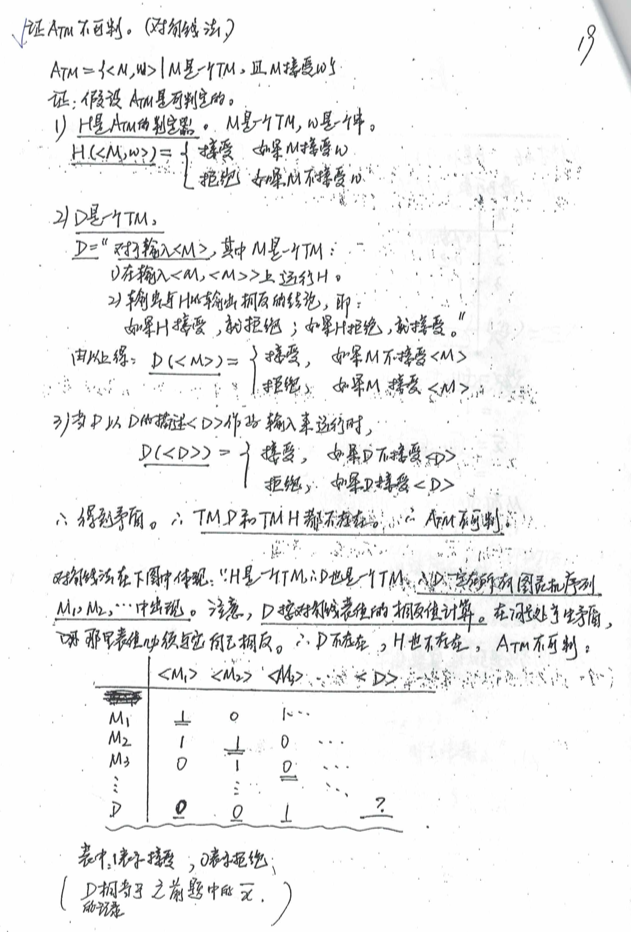 √证ATM不可判。(对角线法)
19
ATM = {<M,w> | M是一个TM,且M接受w}
证:假设 ATM是可判定的。
1) H是ATM的判定器。 M是一个TM, w是一个串。
H(<M,w>) = { 接受 如果M接受w
拒绝 如果M不接受w
2) D是一个TM,
D=" 对于输入<M>, 其中M是一个TM:
1) 在输入<M,<M>>上运行H。
2) 输出与H的输出相反的结论, 即:
如果H接受, 就拒绝; 如果H拒绝, 就接受。"
由以上得: D(<M>) = { 接受, 如果M不接受<M>
拒绝, 如果M接受<M>
3) 当D以D的描述<D>作为输入来运行时,
D(<D>) = { 接受, 如果D不接受<D>
拒绝, 如果D接受<D>
∴ 得到矛盾。∴ TM D和TM H都不存在。∴ ATM不可判。
对角线法在下图中体现: ∵H是一个TM ∴D也是一个TM, ∴D一定在所有图灵机序列
M1, M2, … 中出现。注意, D按对角线表值的相反值计算。在问号处产生矛盾,
那里表值必须与它自己相反。∴ D不存在, H也不存在, ATM不可判。
<M1> <M2> <M3> <D>
M1 1 0 1 …
M2 1 1 0 …
M3 0 1 0 …
⋮ ⋮
D 0 0 1 ?
表中, 1表示接受, 0表示拒绝;
( D相当于之前题中的 x̄. )
的记录